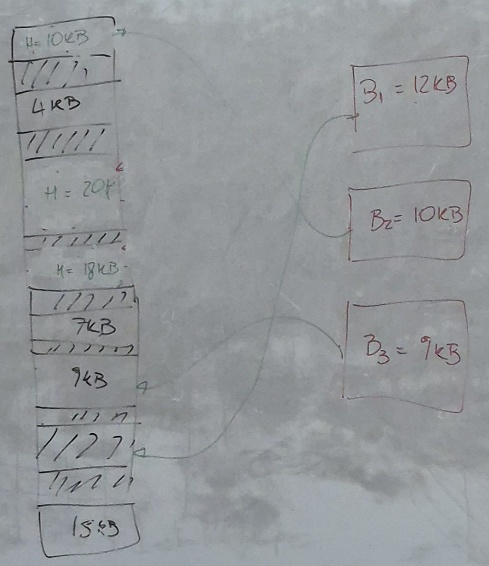 H=10KB
4KB
H = 20K
H= 18KB
7KB
9KB
15KB
B1 = 12KB
B2 = 10KB
B3 = 9KB